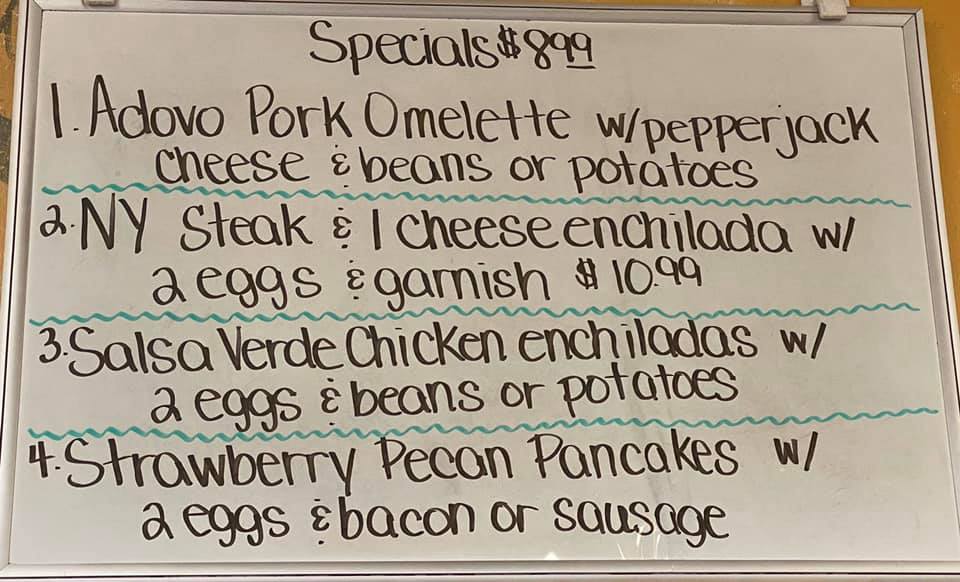 Specials $8.99
1. Adovo Pork Omelette w/pepperjack
cheese & beans or potatoes
2. NY Steak & 1 cheese enchilada w/
2 eggs & garnish $10.99
3. Salsa Verde Chicken enchiladas w/
2 eggs & beans or potatoes
4. Strawberry Pecan Pancakes w/
2 eggs & bacon or sausage